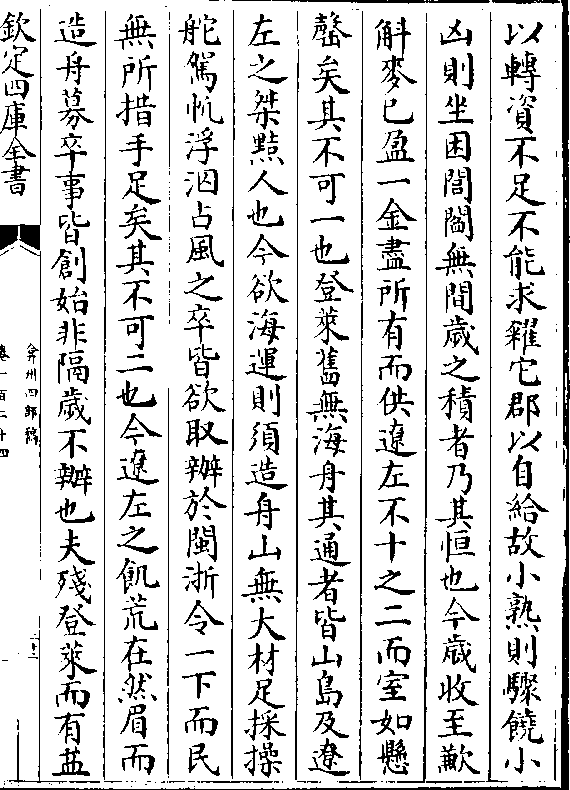 以轉資不足不能求糴它郡以自給故小熟則驟饒小
凶則坐困閭閻無間歲之積者乃其恒也今歲收至歉
斛麥已盈一金盡所有而供遼左不十之二而室如懸
罄矣其不可一也登萊舊無海舟其通者皆山島及遼
左之桀黠人也今欲海運則須造舟山無大材足採操
舵駕帆浮泅占風之卒皆欲取辦於閩浙令一下而民
無所措手足矣其不可二也今遼左之飢荒在然眉而
造舟募卒事皆創始非隔歲不辦也夫殘登萊而有益
欽定四庫全書
弇州四部稿
卷一百二十四